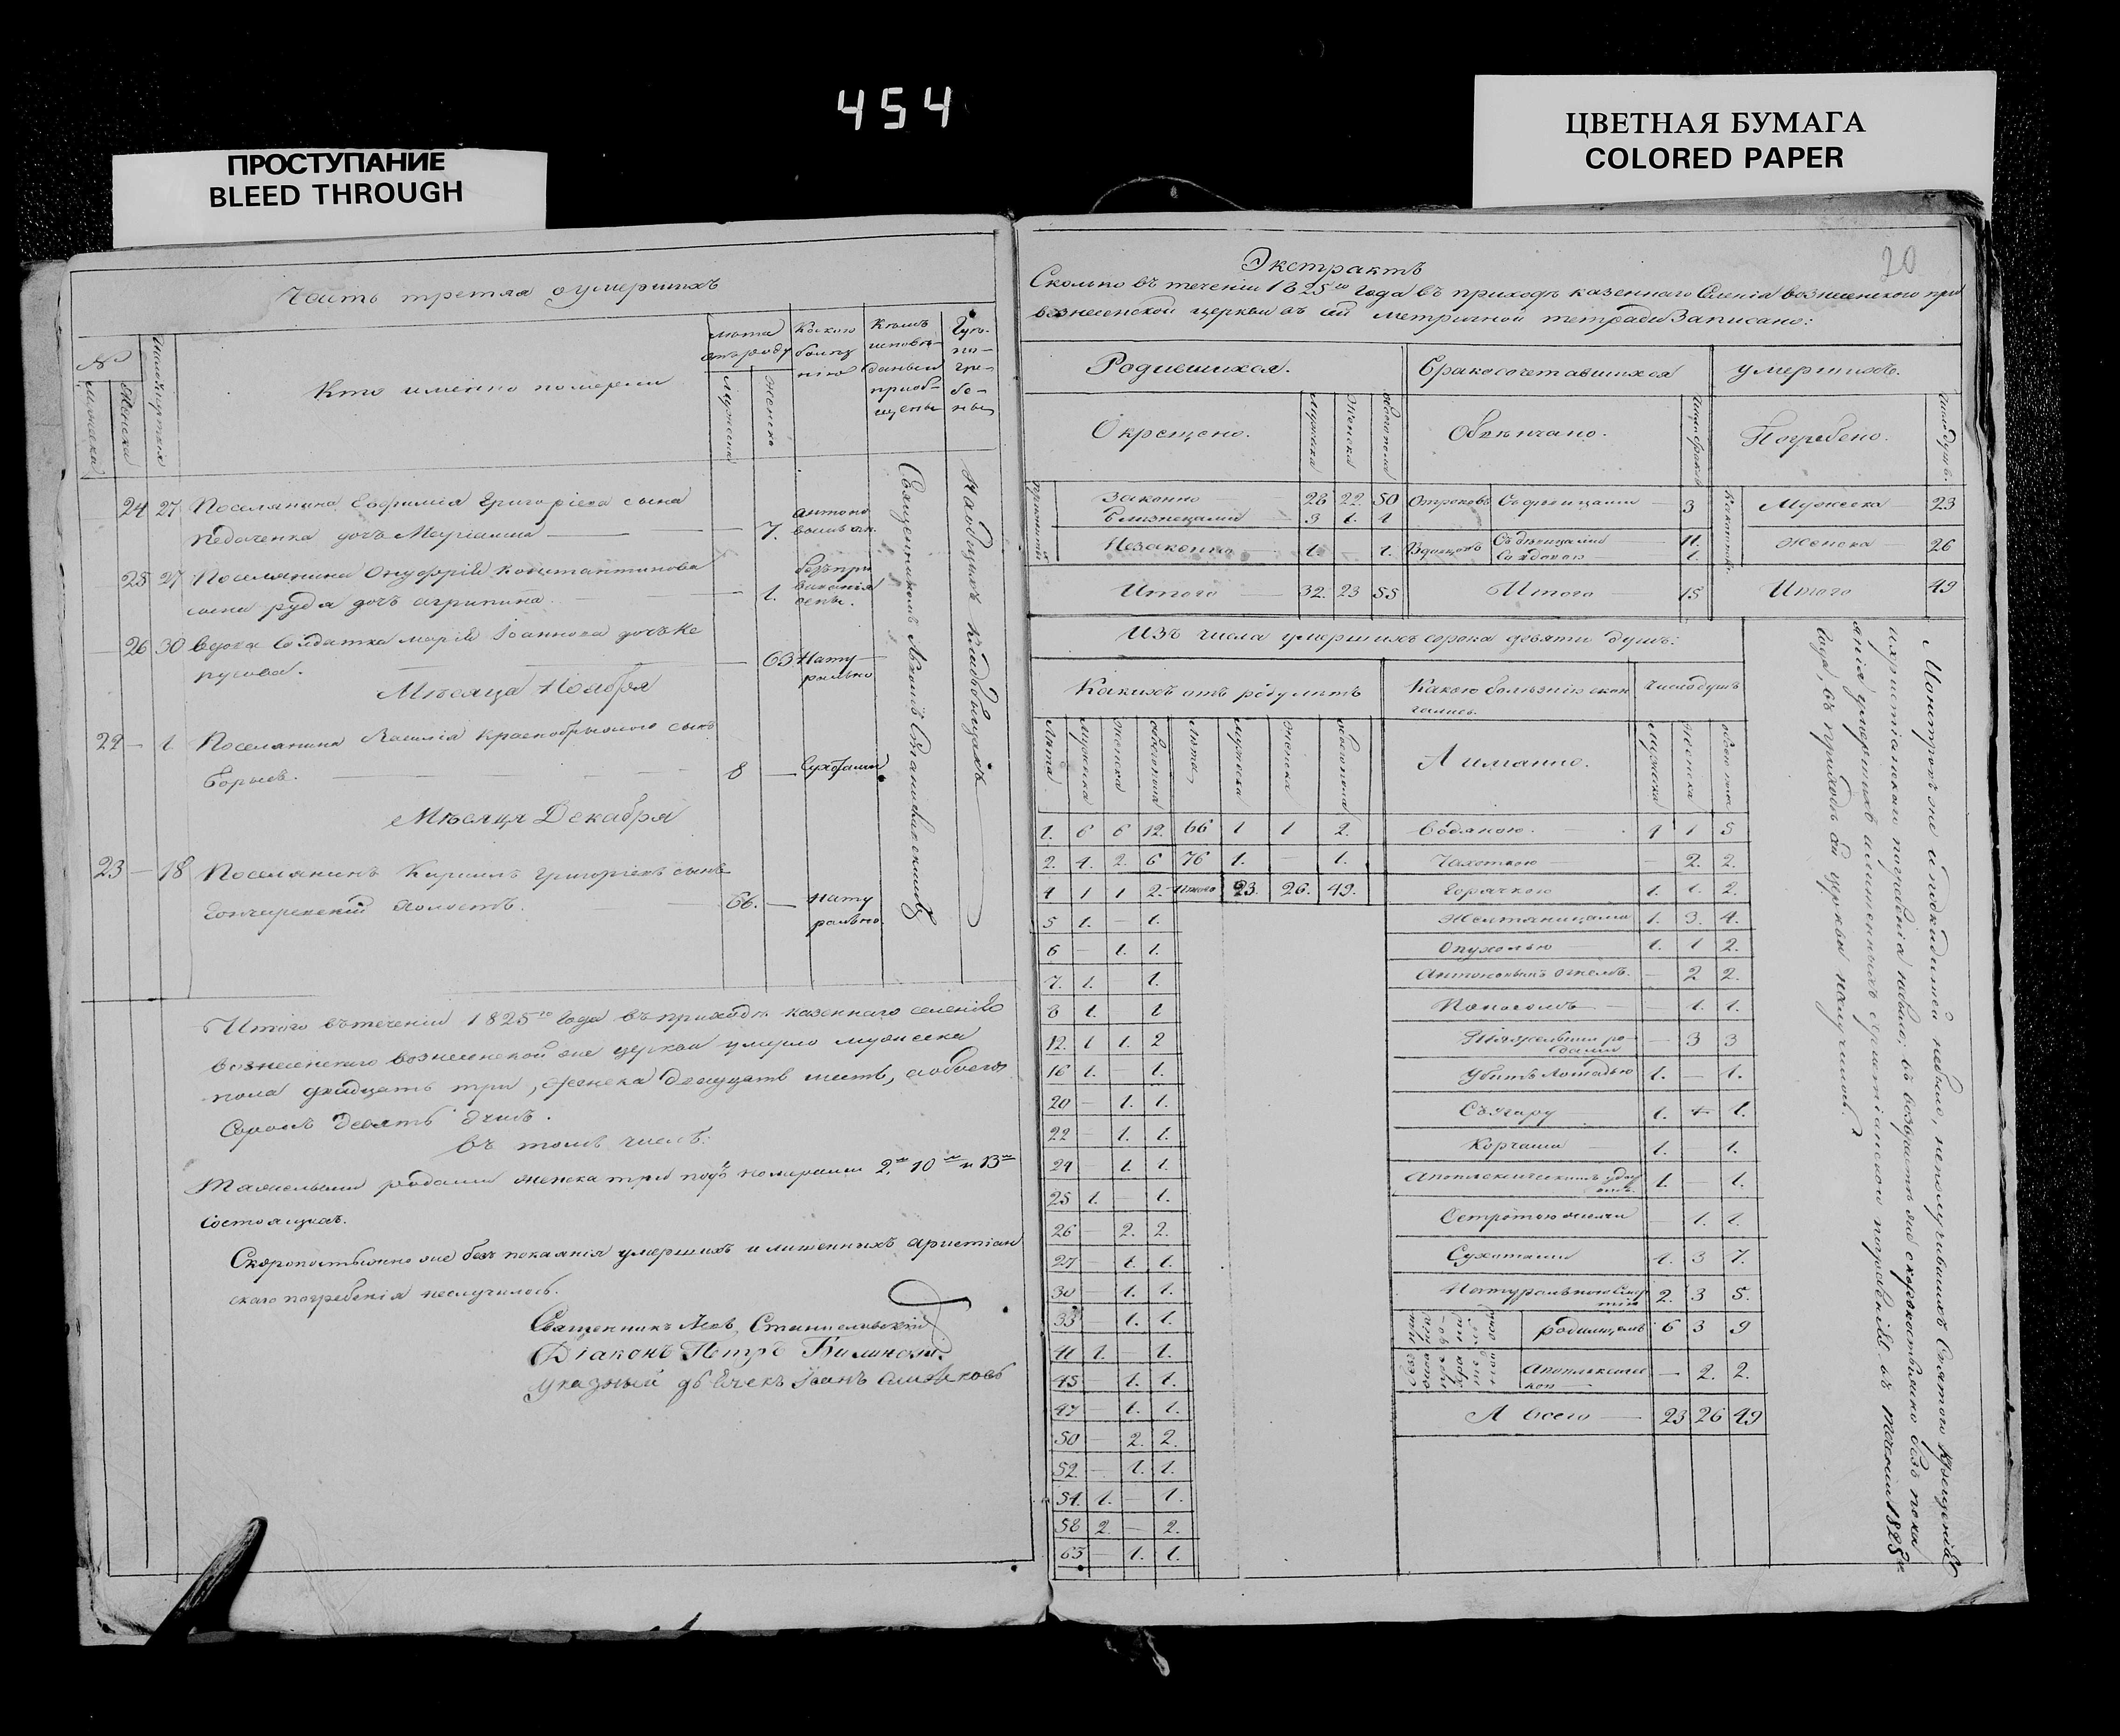 454
ПРОСТУПАНИЕ
BLEED THROUGH
ЦВЕТНАЯ БУМАГА
COLORED PAPER
20
Часть третяя о умершихъ
№
Мужеска
Женска
Число смертия
Кто именно померли
лѣта отъ роду
Мужеска
Женска
Какою болѣзнію
Кѣмъ исповѣданы и приобщены
Гдѣ погребены
24 27 Поселянина Евфимія Григоріева сына
дочь Маріанна — 7.
25 27 Поселянина Онуфрій Константинова
сына руда дочь агрипина — 1.
26 30 вдова Солдатка марій Іоаннова дочь
— 63 Натурально
Мѣсяца Ноября
22 — 1 Поселянина Василія сынъ
8 — Сухотами
Мѣсяця Декабря
23 — 18 Поселянинъ Кирилъ Григоріевъ сынъ
Гончаревскій холостъ. 66. — натурально.
Итого въ теченіи 1825го года въ приходѣ казеннаго селенія
вознесенского вознесенской же церкви умерло мужеска
пола двадцать три, женска двадцать шесть, а обоего
Сорокъ девять душъ.
въ томъ числѣ:
Тяжелыми родами женска три подъ номерами 2м 10м и 13м
состоящиха.
Скоропостыжно же безъ покаянія умершихъ и лишенныхъ христіан
скаго погребенія неслучилось.
Священникъ Левъ Станиславскій
Діаконъ Петръ
указный дьячекъ Іоанъ
Экстрактъ
Сколько въ теченіи 1825го года въ приходѣ казеннаго Селенія вознесенского при
вознесенской церкви въ сій метричной тетради Записано:
Родившихся.
Бракосочетавшихся
умершихъ.
Окрещено.
Мужеска
Женска
обоего пола
Обвѣнчано.
Число браковъ
Погребено.
Число душъ.
Законно 28 22. 50
Близнецами 3 1.
Незаконно 1. 1.
Итого 32. 23 55
Отроковъ Съ дѣвицами 3
Вдовцовъ Съ дѣвицами 11.
Со вдовою 1.
Итого 15
Мужеска 23
Женска 26
Итого 49
Изъ числа умершихъ сорока девяти душъ:
Какихъ отъ роду лѣтъ
Какою болѣзнію скончались.
Число душъ
Лѣта
Мужеска
Женска
обоего пола
Лѣта
Мужеска
Женска
обоего пола
А имянно.
Мужеска
Женска
обоего пола
1. 6 6 12. 66 1 1 2.
2. 4. 2. 6 76 1. — 1.
4 1 1 2. Итого 23. 26. 49.
5 1. — 1.
6 — 1. 1.
7. 1. 1.
8 1. 1
12. 1 1. 2
16 1. — 1.
20 — 1. 1.
22 — 1. 1.
24 — 1. 1.
25 1. — 1.
26 — 2. 2.
27 — 1. 1.
30 — 1. 1.
33 — 1. 1.
41 1. — 1.
45 — 1. 1.
47 — 1. 1.
50 — 2. 2.
52 — 1. 1.
54. 1. — 1.
58 2. — 2.
63 — 1. 1.
Водяною. 4 1 5
Чахоткою — 2. 2.
Горячкою 1. 1. 2.
Желтяницами 1. 3. 4.
Опухолью 1. 1 2.
Антоновымъ огнемъ. — 2 2.
Поносомъ — 1. 1.
Тяжелыми родами — 3 3
Убитъ Лошадью 1. — 1.
Съ жару 1. 1.
Корчами 1. 1.
Апоплексическимъ ударомъ. 1. — 1.
— 1. 1.
Сухотами 4. 3 7.
Натуральною смертію 2. 3 5.
родимцемъ 6 3 9
— 2. 2.
А всего — 23 26 49
Монстровъ же и подкидышей небыло, неполучившихъ Святаго Крещенія
и христіанскаго погребенія небыло; въ возрастѣ же скоропостыжно безъ пока
янія умершихъ и лишенныхъ христіанского погребенія въ теченіи 1825го
года, въ приходѣ сей церкви неслучилось.